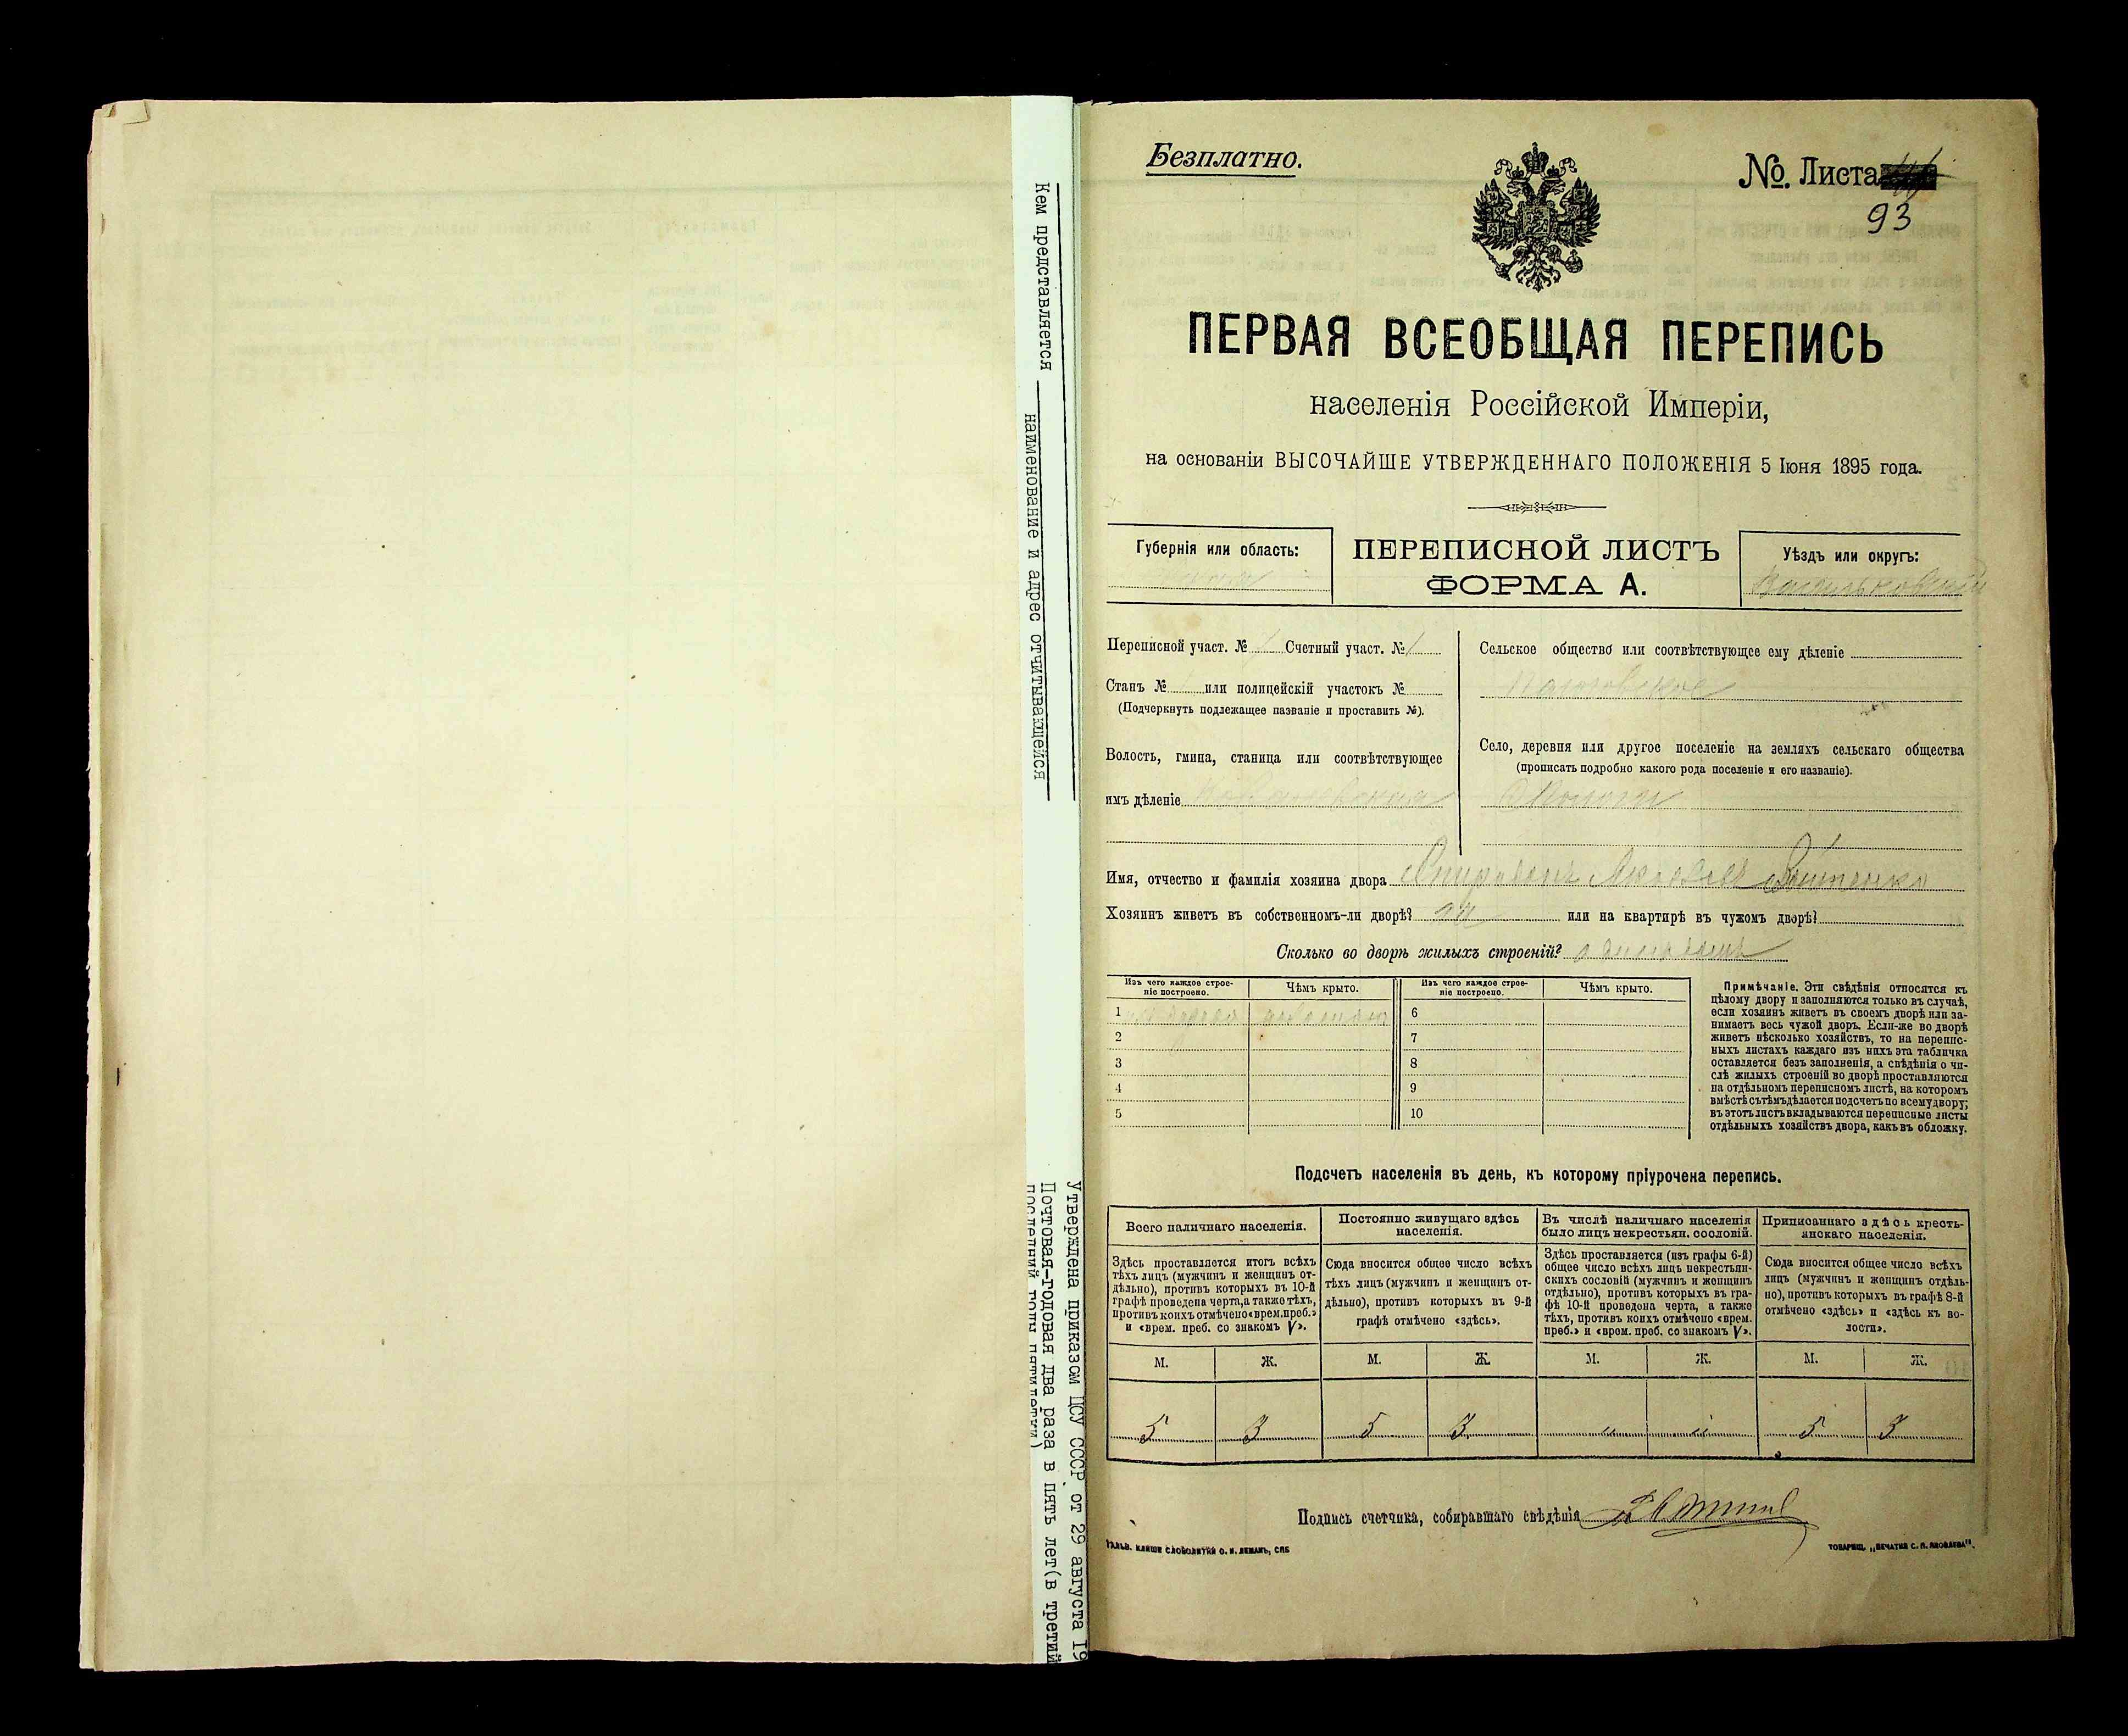 Кем представляется
наименование и адрес отчитывающейся
Утверждена приказом ЦСУ СССР от 29 августа 19
Почтовая-годовая два раза в пять лет(в третий
последний годы пятилетки)
Безплатно.
№. Листа
93
ПЕРВАЯ ВСЕОБЩАЯ ПЕРЕПИСЬ
населенія Россійской Имперіи,
на основаніи ВЫСОЧАЙШЕ УТВЕРЖДЕННАГО ПОЛОЖЕНІЯ 5 Іюня 1895 года.
Губернія или область:
ПЕРЕПИСНОЙ ЛИСТЪ
ФОРМА А.
Уѣздъ или округъ:
Васильковскій
Переписной участ. № 1 Счетный участ. № 1
Станъ № или полицейскій участокъ №
(Подчеркнуть подлежащее названіе и проставить №).
Волость, гмина, станица или соотвѣтствующее
имъ дѣленіе
Сельское общество или соотвѣтствующее ему дѣленіе
Село, деревня или другое поселеніе на земляхъ сельскаго общества
(прописать подробно какого рода поселеніе и его названіе).
Имя, отчество и фамилія хозяина двора Спиридонъ Яковлев
Хозяинъ живетъ въ собственномъ-ли дворѣ? или на квартирѣ въ чужомъ дворѣ?
Сколько во дворѣ жилыхъ строеній?
Изъ чего каждое строе-
ніе построено.
Чѣмъ крыто.
Изъ чего каждое строе-
ніе построено.
Чѣмъ крыто.
1 6
2 7
3 8
4 9
5 10
Примѣчаніе. Эти свѣдѣнія относятся къ
цѣлому двору и заполняются только въ случаѣ,
если хозяинъ живетъ въ своемъ дворѣ или за-
нимаетъ весь чужой дворъ. Если-же во дворѣ
живетъ нѣсколько хозяйствъ, то на перепис-
ныхъ листахъ каждаго изъ нихъ эта табличка
оставляется безъ заполненія, а свѣдѣнія о чи-
слѣ жилыхъ строеній во дворѣ проставляются
на отдѣльномъ переписномъ листѣ, на которомъ
вмѣстѣ съ тѣмъ дѣлается подсчетъ по всему двору;
въ этотъ листъ вкладываются переписные листы
отдѣльныхъ хозяйствъ двора, какъ въ обложку.
Подсчетъ населенія въ день, къ которому пріурочена перепись.
Всего наличнаго населенія.
Здѣсь проставляется итогъ всѣхъ
тѣхъ лицъ (мужчинъ и женщинъ от-
дѣльно), противъ которыхъ въ 10-й
графѣ проведена черта, а также тѣхъ,
противъ коихъ отмѣчено «врем. преб.»
и «врем. преб. со знакомъ V».
Постоянно живущаго здѣсь
населенія.
Сюда вносится общее число всѣхъ
тѣхъ лицъ (мужчинъ и женщинъ от-
дѣльно), противъ которыхъ въ 9-й
графѣ отмѣчено «здѣсь».
Въ числѣ наличнаго населенія
было лицъ некрестьян. сословій.
Здѣсь проставляется (изъ графы 6-й)
общее число всѣхъ лицъ некрестьян-
скихъ сословій (мужчинъ и женщинъ
отдѣльно), противъ которыхъ въ гра-
фѣ 10-й проведена черта, а также
тѣхъ, противъ коихъ отмѣчено «врем.
преб.» и «врем. преб. со знакомъ V».
Приписаннаго здѣсь кресть-
янскаго населенія.
Сюда вносится общее число всѣхъ
лицъ (мужчинъ и женщинъ отдѣль-
но), противъ которыхъ въ графѣ 8-й
отмѣчено «здѣсь» и «здѣсь къ во-
лости».
М. Ж. М. Ж. М. Ж. М. Ж.
5 3 5 3 " " 5 3
Подпись счетчика, собиравшаго свѣдѣнія
ГАЛЬВ. КЛИШЕ СЛОВОЛИТНИ О. И. ЛЕМАНЪ, СПБ
ТОВАРИЩ. „ПЕЧАТНЯ С. П. ЯКОВЛЕВА".